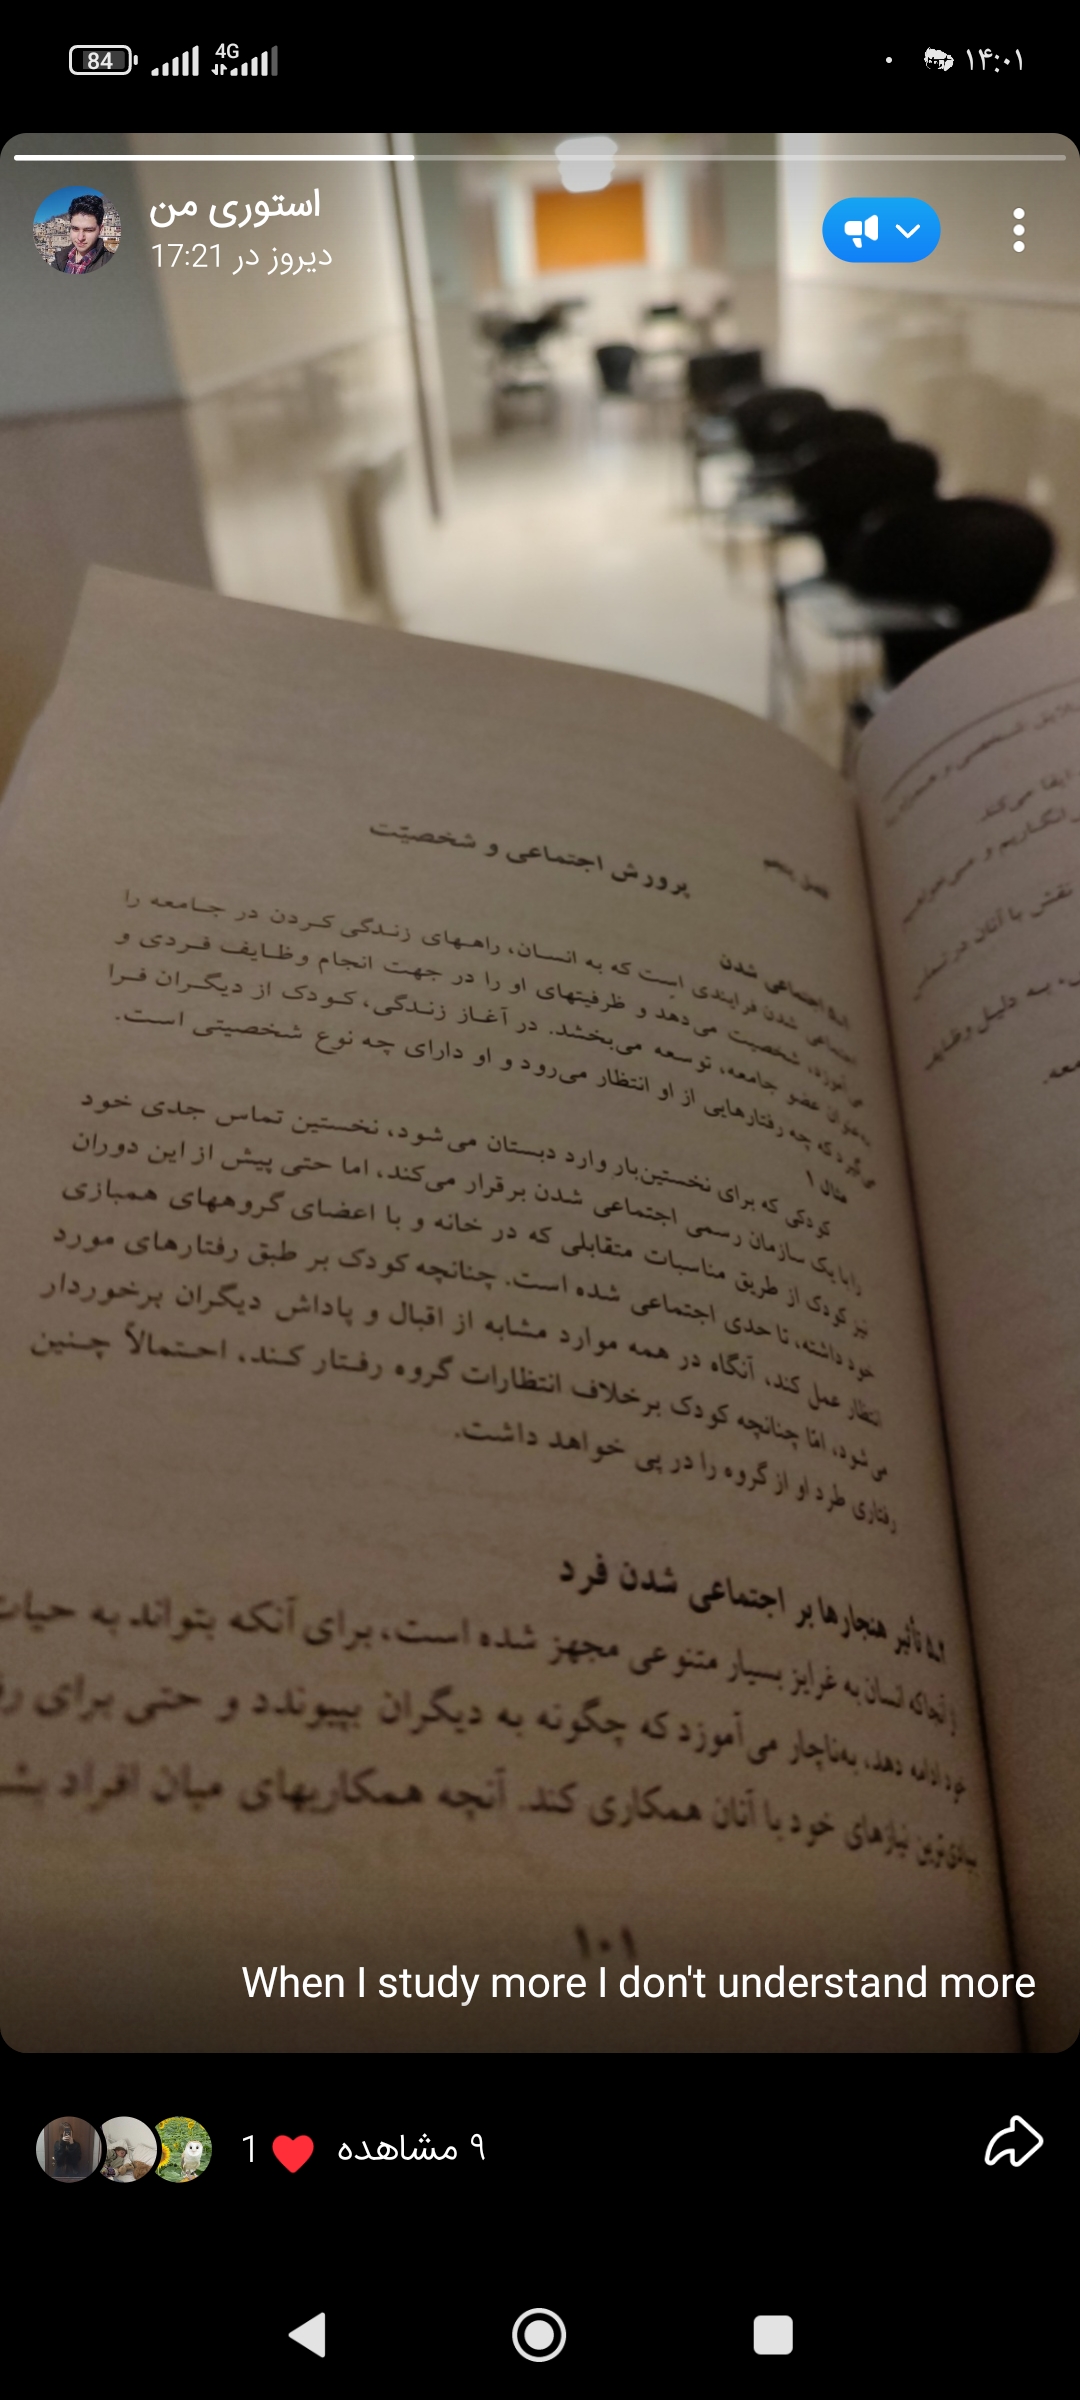 84
4G
۱۴:۰۱
استوری من
دیروز در 17:21
فصل پنجم
پرورش اجتماعی و شخصیّت
۵.۱ اجتماعی شدن
اجتماعی شدن فرایندی است که به انسان، راههای زندگی کردن در جامعه را
می‌آموزد، شخصیت می‌دهد و ظرفیتهای او را در جهت انجام وظایف فردی و
به‌عنوان عضو جامعه، توسعه می‌بخشد. در آغاز زندگی، کودک از دیگران فرا
می‌گیرد که چه رفتارهایی از او انتظار می‌رود و او دارای چه نوع شخصیتی است.
مثال ۱
کودکی که برای نخستین‌بار وارد دبستان می‌شود، نخستین تماس جدی خود
را با یک سازمان رسمی اجتماعی شدن برقرار می‌کند، اما حتی پیش از این دوران
نیز کودک از طریق مناسبات متقابلی که در خانه و با اعضای گروههای همبازی
خود داشته، تا حدی اجتماعی شده است. چنانچه کودک بر طبق رفتارهای مورد
انتظار عمل کند، آنگاه در همه موارد مشابه از اقبال و پاداش دیگران برخوردار
می‌شود، امّا چنانچه کودک برخلاف انتظارات گروه رفتار کند، احتمالاً چنین
رفتاری طرد او از گروه را در پی خواهد داشت.
تأثیر هنجارها بر اجتماعی شدن فرد
از آنجا که انسان به غرایز بسیار متنوعی مجهز شده است، برای آنکه بتواند به حیات
خود ادامه دهد، به‌ناچار می‌آموزد که چگونه به دیگران بپیوندد و حتی برای
بنیادی‌ترین نیازهای خود با آنان همکاری کند. آنچه همکاریهای میان افراد
۱۰۱
شخصی و
ایفا می‌کند.
انگاریم و می‌خواهیم
نقش با آنان در
به دلیل وظایف
When I study more I don't understand more
1
۹ مشاهده